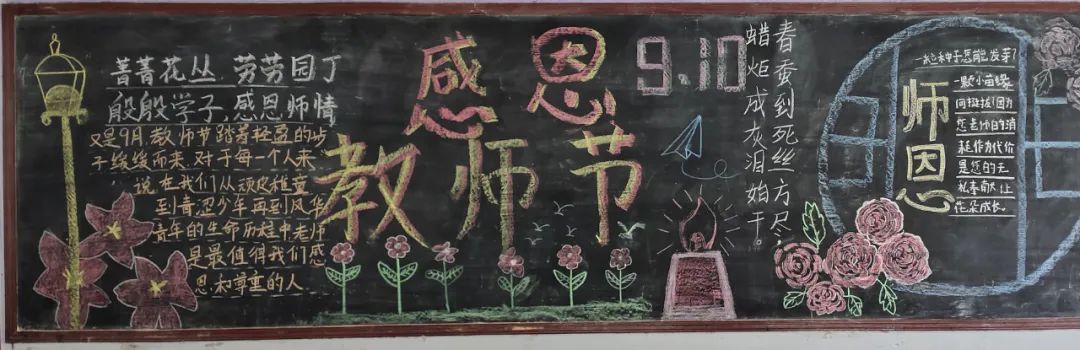 菁菁花丛 劳劳园丁
殷殷学子,感恩师情
又是9月,教师节踏着轻盈的步
子缓缓而来,对于每一个人来
说,在我们从顽皮稚童
到青涩少年再到风华
青年的生命历程中,老师
是最值得我们感
恩和尊重的人
感恩
教师节
9.10
春蚕到死丝方尽,
蜡炬成灰泪始干。
师恩
一粒种子怎能发芽?
一颗小苗缘
何挺拔?因为
您老师的消
耗作为代价
是您的无
私奉献让
花朵成长。